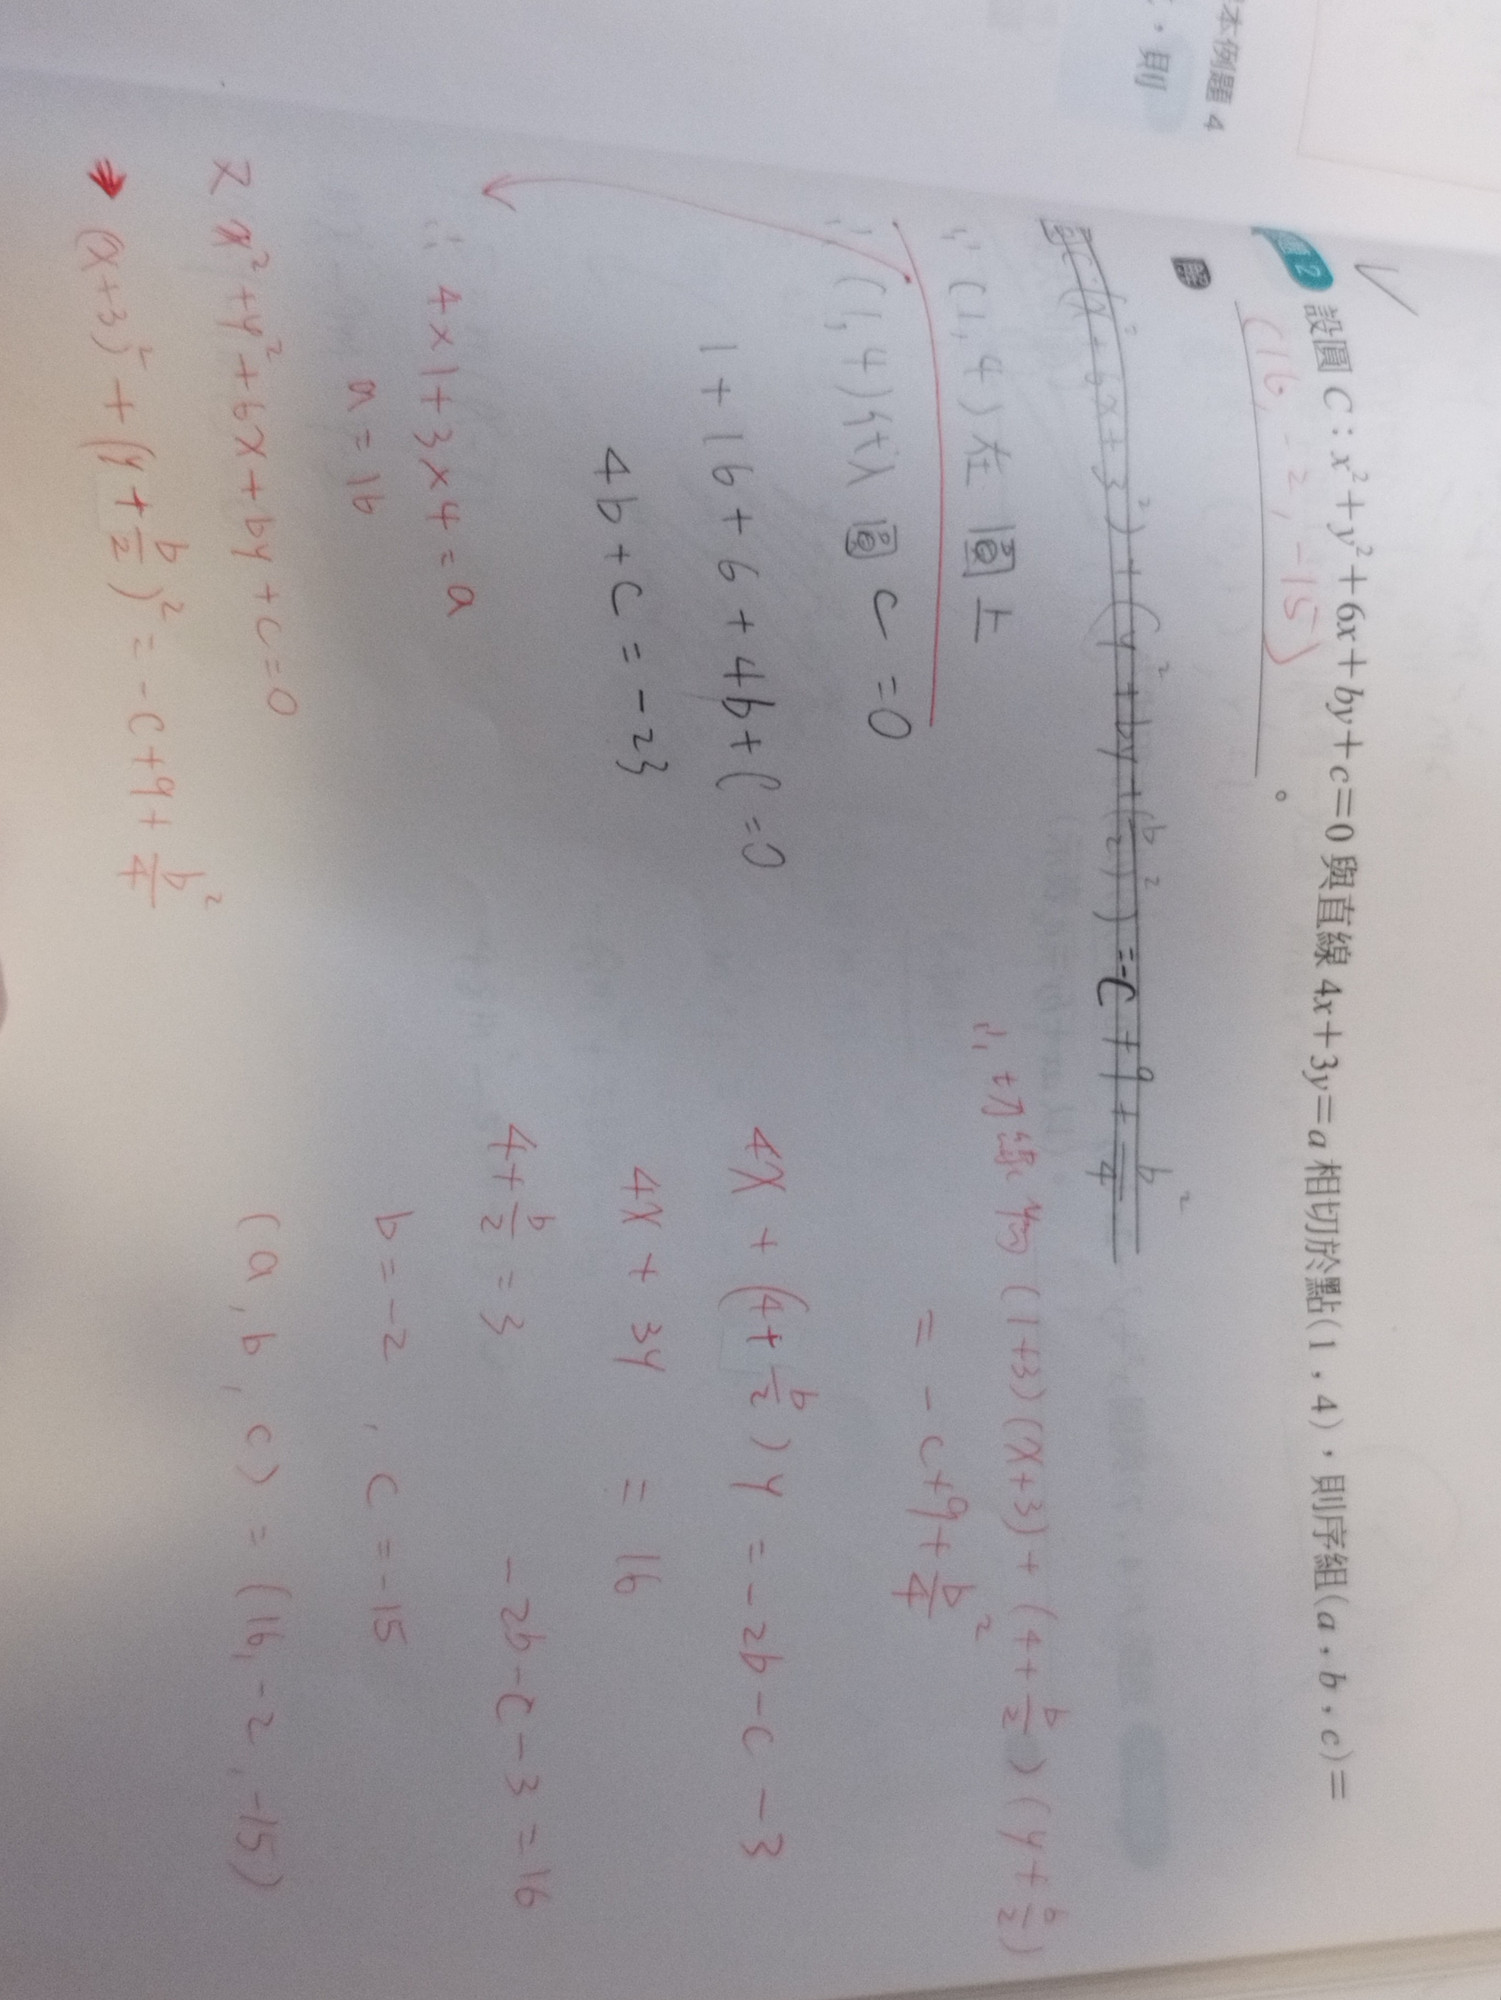 本例題 4
,則
2 設圓 C:x²+y²+6x+by+c=0 與直線 4x+3y=a 相切於點(1,4),則序組(a,b,c)=
(16,-2,-15)。
解
圓C(x²+6x+3²)+(y²+by+(b/2)²)=-c+9+b²/4
∵(1,4)在圓上
∴(1,4)代入圓C=0
1+16+6+4b+c=0
4b+c=-23
∴4×1+3×4=a
a=16
又x²+y²+6x+by+c=0
→(x+3)²+(y+b/2)²=-c+9+b²/4
∴切線為(1+3)(x+3)+(4+b/2)(y+b/2)
=-c+9+b²/4
4x+(4+b/2)y=-2b-c-3
4x+3y=16
4+b/2=3 -2b-c-3=16
b=-2,c=-15
(a,b,c)=(16,-2,-15)